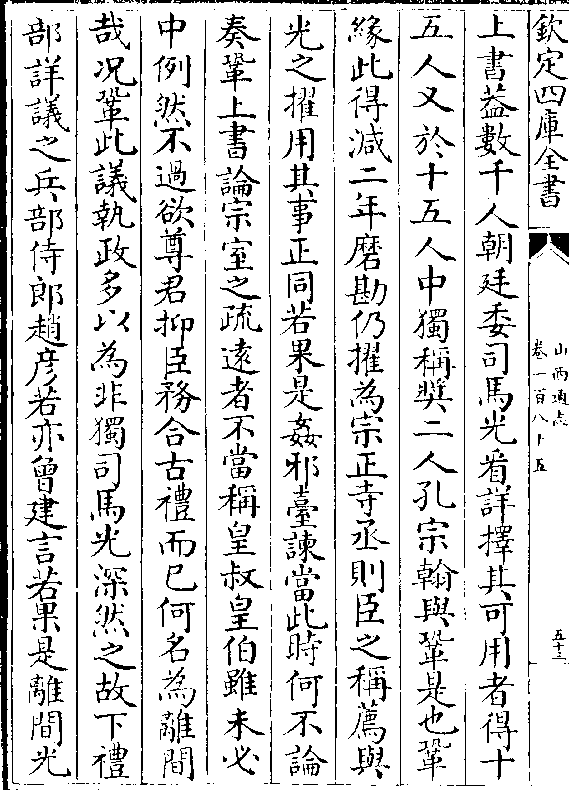 欽定四庫全書
山西通志
卷一百八十五
五十三
上書葢數千人朝廷委司馬光看詳擇其可用者得十
五人又於十五人中獨稱奬二人孔宗翰與鞏是也鞏
緣此得減二年磨勘仍擢為宗正寺丞則臣之稱薦與
光之擢用其事正同若果是姦邪臺諫當此時何不論
奏鞏上書論宗室之疏遠者不當稱皇叔皇伯雖未必
中例然不過欲尊君抑臣務合古禮而已何名為離間
哉况鞏此議執政多以為非獨司馬光深然之故下禮
部詳議之兵部侍郎趙彦若亦曾建言若果是離間光